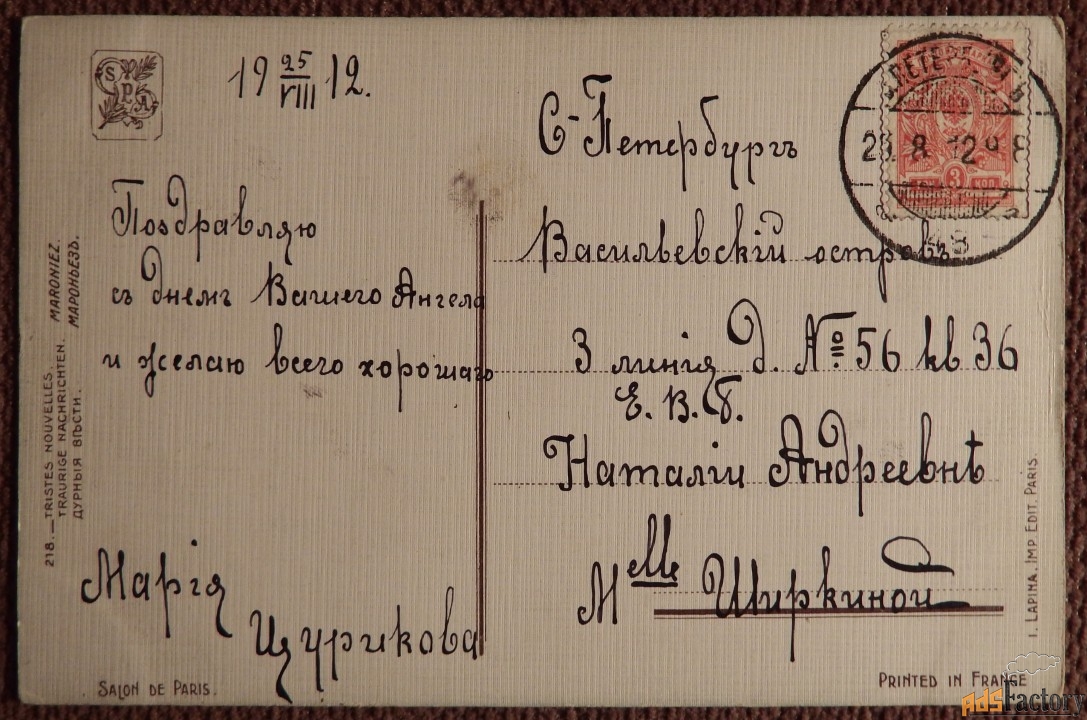 SPA
19 25/VIII 12.
Поздравляю
съ днемъ Вашего Ангела
и желаю всего хорошаго
Марія
Цурикова
С-Петербургъ
Васильевскій островъ
3 линія д. № 56 кв 36
Е. В. Б.
Наталіи Андреевнѣ
Melle Ширкиной
8 12
3 КОП
218.—TRISTES NOUVELLES. MARONIEZ.
TRAURIGE NACHRICHTEN. МАРОНЬЕЗЪ.
ДУРНЫЯ ВѢСТИ.
SALON DE PARIS.
I. LAPINA. IMP. EDIT. PARIS.
PRINTED IN FRANCE
AdsFactory